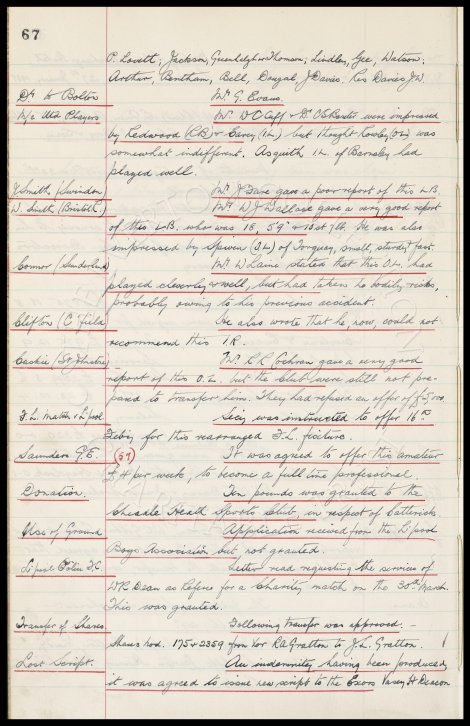 67
P. Lovett; Jackson, Greenhalgh or Thomson; Lindley, Gee, Watson;
Arthur, Bentham, Bell, Dougal, J Davies. Res Davies J.W.
Dn to Bolton
Mr. G. Evans.
M/c Utd Players
Mr W C Cuff & Dr. were impressed
by Redwood (R.B.) & Carey (I.L.) but thought Rowley (O.L.) was
somewhat indifferent. Asquith I.L. of Barnsley had
played well.
J Smith (Swindon)
Mr. gave a poor report of this L.B.
W. Smith (Bristol C.)
Mr W J gave a very good report
of this L.B. who was 18, 5'9" & 10 st 7 lb. He was also
impressed by (O.L.) of Torquay, small, sturdy, fast.
Connor (Sunderland)
Mr. W Laine stated that this O.L. had
played cleverly & well, but had taken no bodily risks,
probably owing to his previous accident.
Clifton (C'field
He also wrote that he now, could not
recommend this I.R.
Caskie (St Johnstne)
Mr. C R Cochran gave a very good
report of this O.L. but the Club were still not pre-
pared to transfer him. They had refused an offer of £5,000.
F.L. match v L'pool
Secy was instructed to offer 16th
Feby for this rearranged F.L. fixture.
Saunders G.E. (59)
It was agreed to offer this amateur
£4 per week, to become a full time professional.
Donation.
Ten pounds was granted to the
Heath Sports Club, in respect of Catterick.
Use of Ground
Application received from the L'pool
Boys Association but not granted.
L'pool Police F.C.
Letter read requesting the services of
W R Dean as Referee for a Charity match on the 30th March.
This was granted.
Transfer of Shares.
Following transfer was approved:-
Shares Nod. 175 & 2359 from Exor R A Gratton to J.L. Gratton.
Lost Script.
An indemnity having been produced,
it was agreed to issue new script to the Exors H Deacon